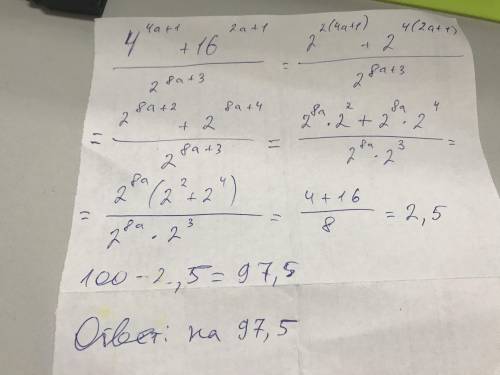 (4^(4a+1) + 16^(2a+1)) / 2^(8a+3) = (2^(2(4a+1)) + 2^(4(2a+1))) / 2^(8a+3)
= (2^(8a+2) + 2^(8a+4)) / 2^(8a+3) = (2^(8a) · 2^2 + 2^(8a) · 2^4) / (2^(8a) · 2^3) =
= (2^(8a) (2^2 + 2^4)) / (2^(8a) · 2^3) = (4 + 16) / 8 = 2,5
100 - 2,5 = 97,5
Ответ: на 97,5